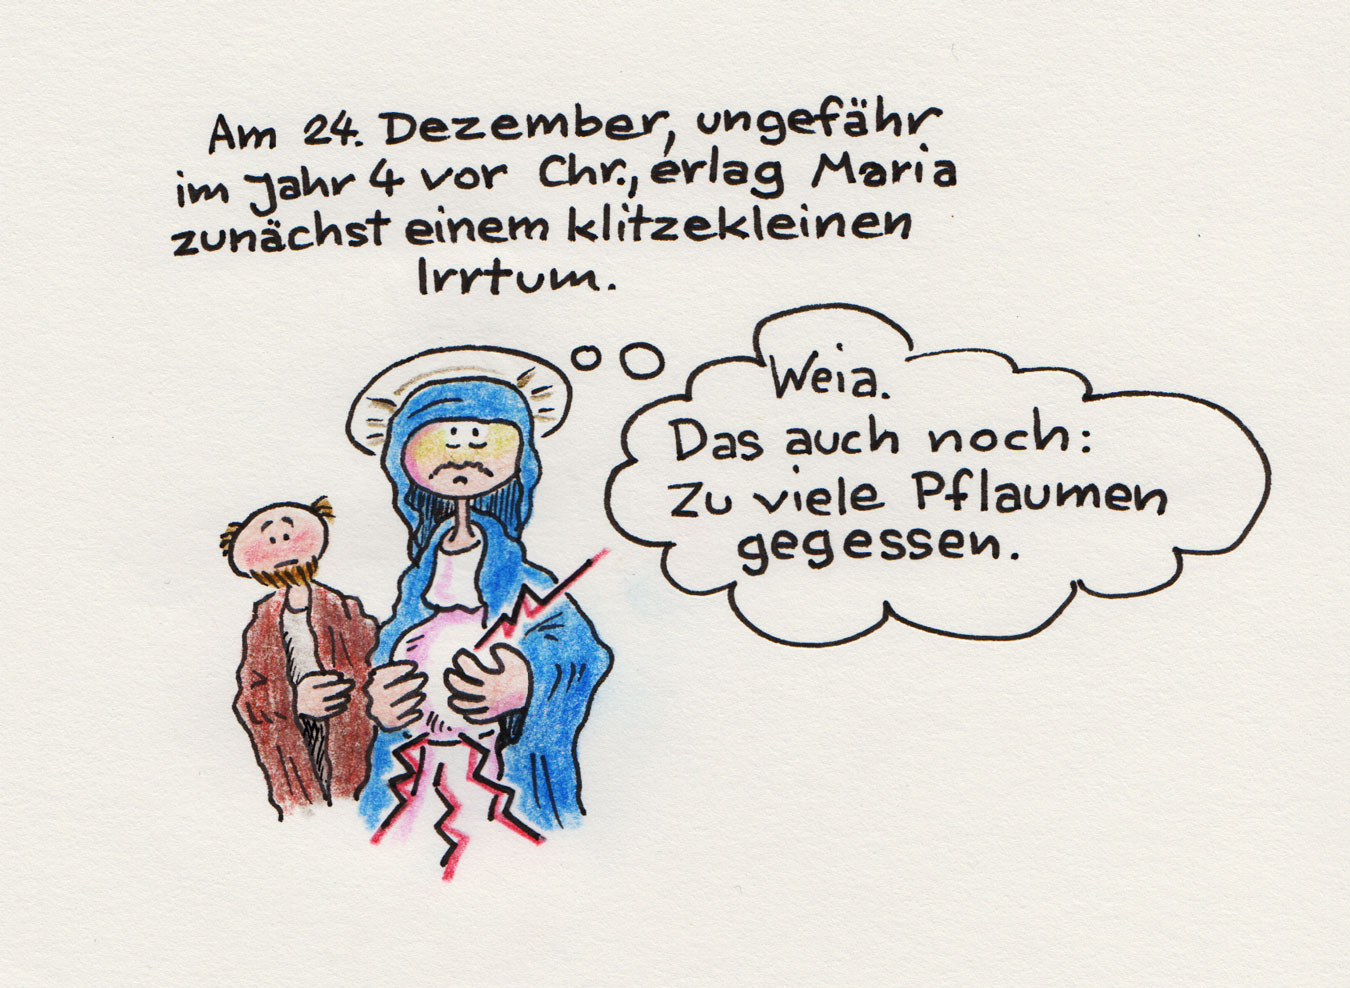 Am 24. Dezember, ungefähr
im Jahr 4 vor Chr., erlag Maria
zunächst einem klitzekleinen
Irrtum.
Weia.
Das auch noch:
Zu viele Pflaumen
gegessen.